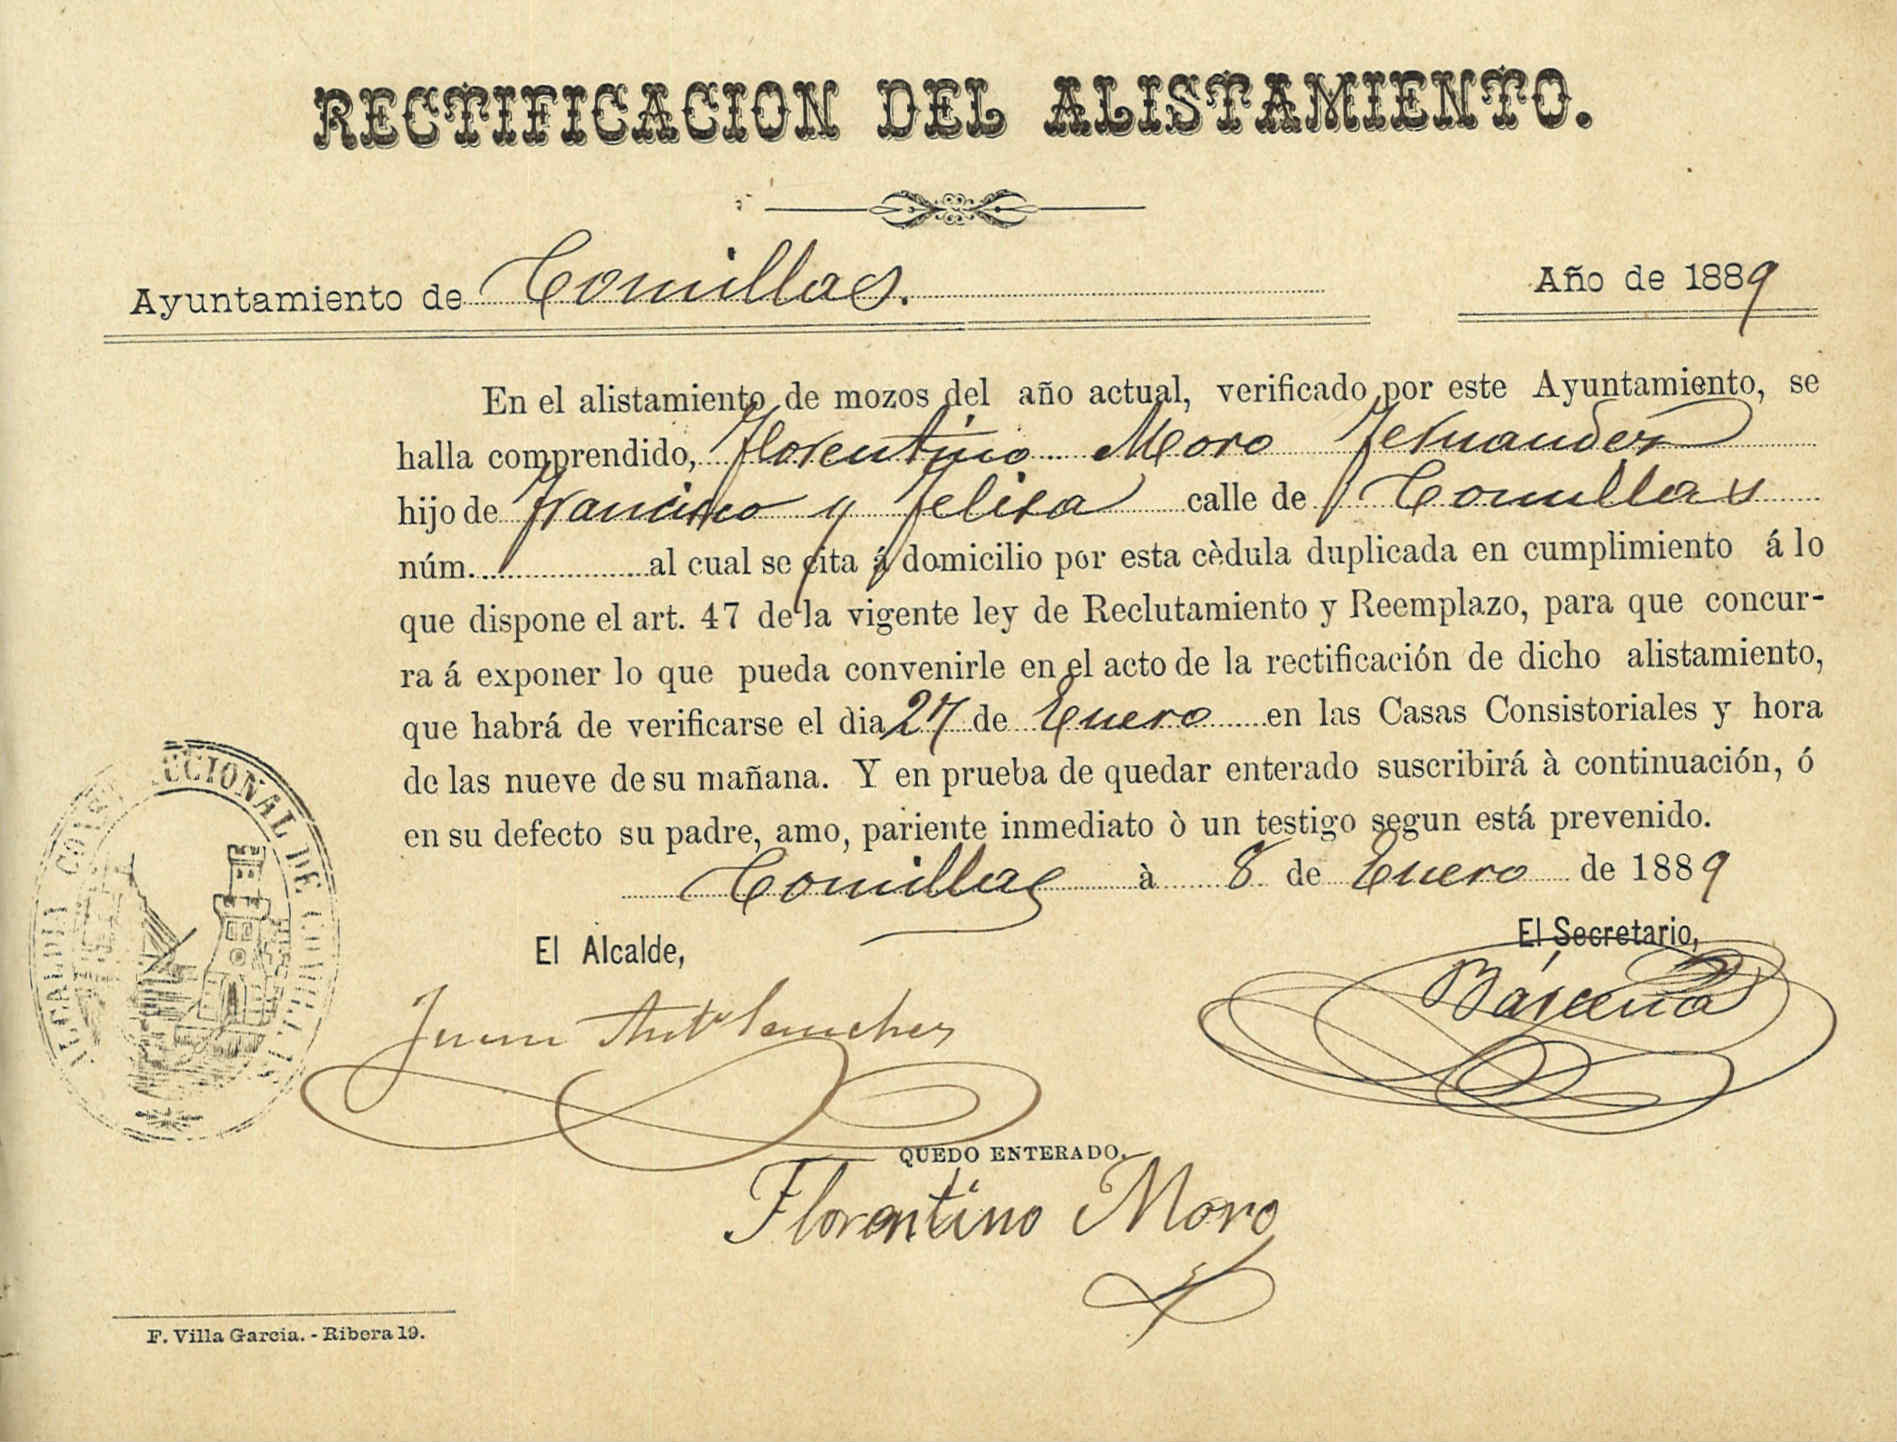 RECTIFICACION DEL ALISTAMIENTO.
Ayuntamiento de Comillas. Año de 1889
En el alistamiento de mozos del año actual, verificado por este Ayuntamiento, se
halla comprendido, Florentino Moro Fernandez
hijo de Francisco y Felisa calle de Comillas
núm. al cual se cita á domicilio por esta cèdula duplicada en cumplimiento á lo
que dispone el art. 47 de la vigente ley de Reclutamiento y Reemplazo, para que concur-
ra á exponer lo que pueda convenirle en el acto de la rectificación de dicho alistamiento,
que habrá de verificarse el dia 27 de Enero en las Casas Consistoriales y hora
de las nueve de su mañana. Y en prueba de quedar enterado suscribirá à continuación, ó
en su defecto su padre, amo, pariente inmediato ò un testigo segun está prevenido.
Comillas à 8 de Enero de 1889
El Alcalde, El Secretario,
Juan Ant.º Sanchez Bárcena
ALCALDIA CONSTITUCIONAL DE COMILLAS
QUEDO ENTERADO.
Florentino Moro
F. Villa Garcia. - Ribera 19.